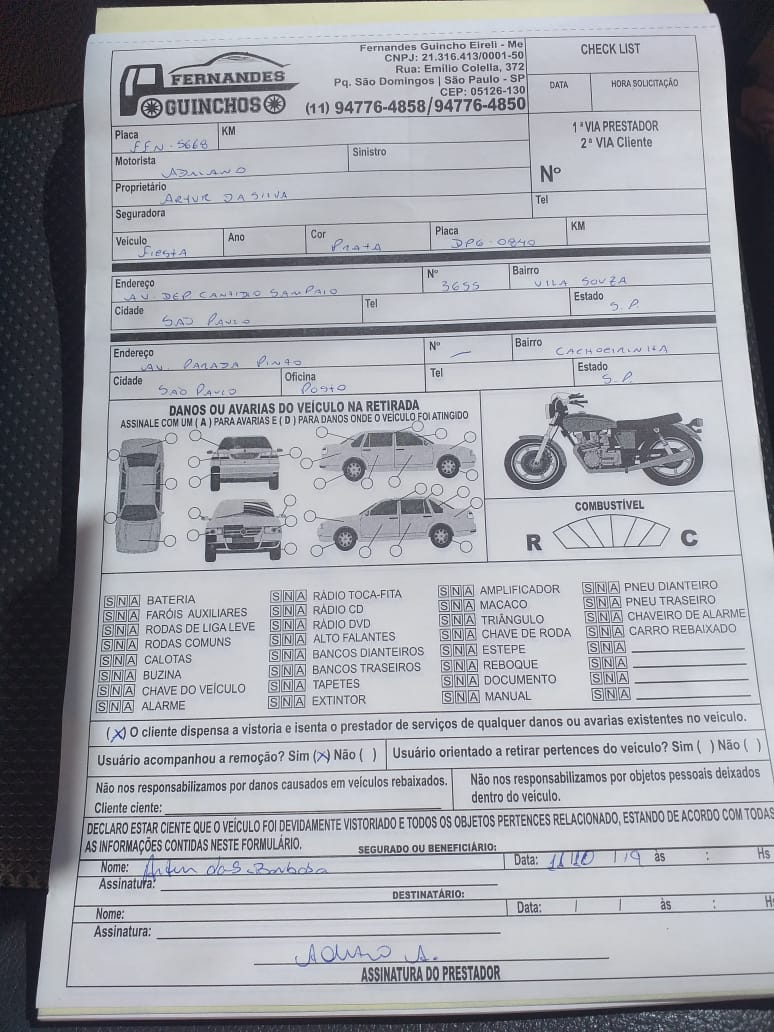 FERNANDES
GUINCHOS
Fernandes Guincho Eireli - Me
CNPJ: 21.316.413/0001-50
Rua: Emílio Colella, 372
Pq. São Domingos | São Paulo - SP
CEP: 05126-130
(11) 94776-4858/94776-4850
CHECK LIST
DATA HORA SOLICITAÇÃO
1ª VIA PRESTADOR
2ª VIA Cliente
Nº
Placa FFN-5668 KM
Motorista ADRIANO Sinistro
Proprietário ARTUR DA SILVA
Seguradora Tel
Veículo FIESTA Ano Cor PRATA Placa DPG-0840 KM
Endereço AV. DEP CANTIDIO SAMPAIO Nº 3655 Bairro VILA SOUZA
Cidade SAO PAULO Tel Estado S.P.
Endereço AV. PARADA PINTO Nº — Bairro CACHOEIRINHA
Cidade SAO PAULO Oficina POSTO Tel Estado S.P.
DANOS OU AVARIAS DO VEÍCULO NA RETIRADA
ASSINALE COM UM ( A ) PARA AVARIAS E ( D ) PARA DANOS ONDE O VEÍCULO FOI ATINGIDO
COMBUSTÍVEL
R C
S N A BATERIA
S N A FARÓIS AUXILIARES
S N A RODAS DE LIGA LEVE
S N A RODAS COMUNS
S N A CALOTAS
S N A BUZINA
S N A CHAVE DO VEÍCULO
S N A ALARME
S N A RÁDIO TOCA-FITA
S N A RÁDIO CD
S N A RÁDIO DVD
S N A ALTO FALANTES
S N A BANCOS DIANTEIROS
S N A BANCOS TRASEIROS
S N A TAPETES
S N A EXTINTOR
S N A AMPLIFICADOR
S N A MACACO
S N A TRIÂNGULO
S N A CHAVE DE RODA
S N A ESTEPE
S N A REBOQUE
S N A DOCUMENTO
S N A MANUAL
S N A PNEU DIANTEIRO
S N A PNEU TRASEIRO
S N A CHAVEIRO DE ALARME
S N A CARRO REBAIXADO
S N A
S N A
S N A
S N A
(X) O cliente dispensa a vistoria e isenta o prestador de serviços de qualquer danos ou avarias existentes no veículo.
Usuário acompanhou a remoção? Sim (X) Não ( ) Usuário orientado a retirar pertences do veículo? Sim ( ) Não ( )
Não nos responsabilizamos por danos causados em veículos rebaixados.
Cliente ciente:
Não nos responsabilizamos por objetos pessoais deixados
dentro do veículo.
DECLARO ESTAR CIENTE QUE O VEÍCULO FOI DEVIDAMENTE VISTORIADO E TODOS OS OBJETOS PERTENCES RELACIONADO, ESTANDO DE ACORDO COM TODAS
AS INFORMAÇÕES CONTIDAS NESTE FORMULÁRIO.
SEGURADO OU BENEFICIÁRIO:
Nome: Artur da S. Barbosa Data: 11/10/19 às : Hs
Assinatura:
DESTINATÁRIO:
Nome: Data: / / às : Hs
Assinatura:
ASSINATURA DO PRESTADOR